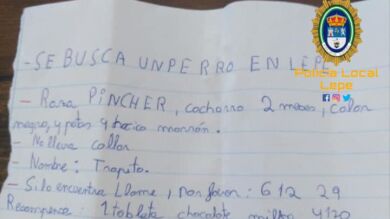 - SE BUSCA UN PERRO EN LEPE
Policía Local
Lepe
- Raza PINCHER, cachorro 2 meses, color
negro, y patas y hocico marrón.
- No lleva collar
- Nombre: Trapito.
- Si lo encuentra llame, por favor: 612 29
Recompensa: 1 tableta chocolate milka 4120